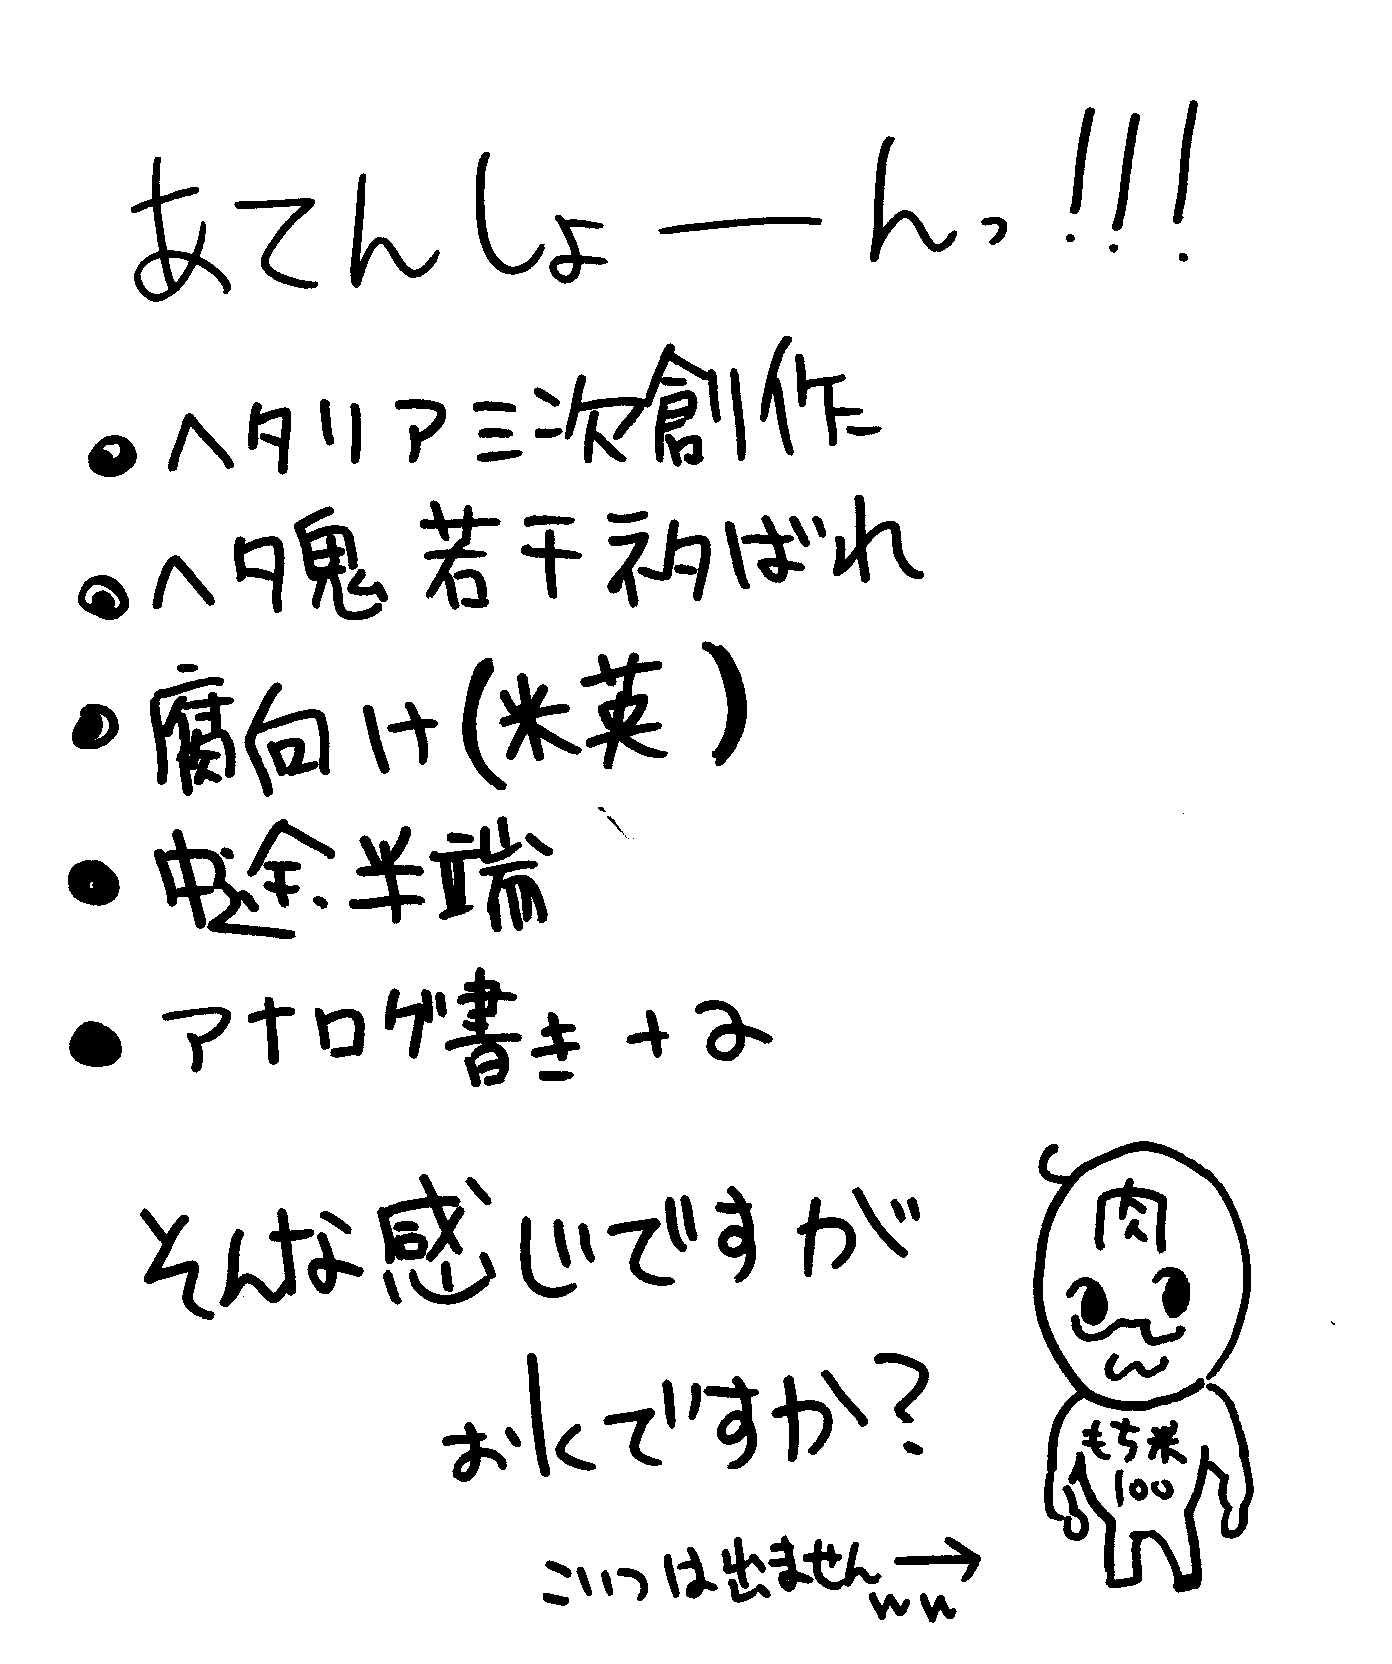 あてんしょーんっ!!!
●ヘタリア三次創作
●ヘタ鬼 若干ネタばれ
●腐向け(米英)
●中途半端
●アナログ書き+α
そんな感じですが
おkですか?
こいつは出ません→
ww
肉
もち米
100